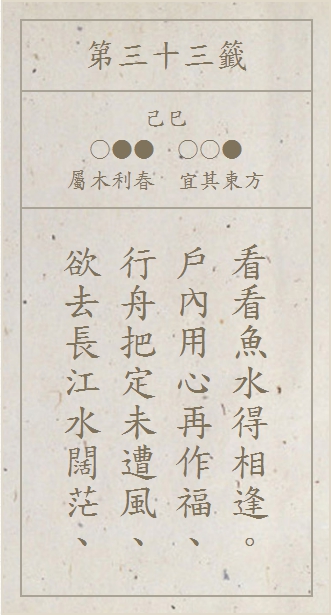 第三十三籤
己巳
○●● ○○●
屬木利春 宜其東方
欲去長江水闊茫、
行舟把定未遭風、
戶內用心再作福、
看看魚水得相逢。